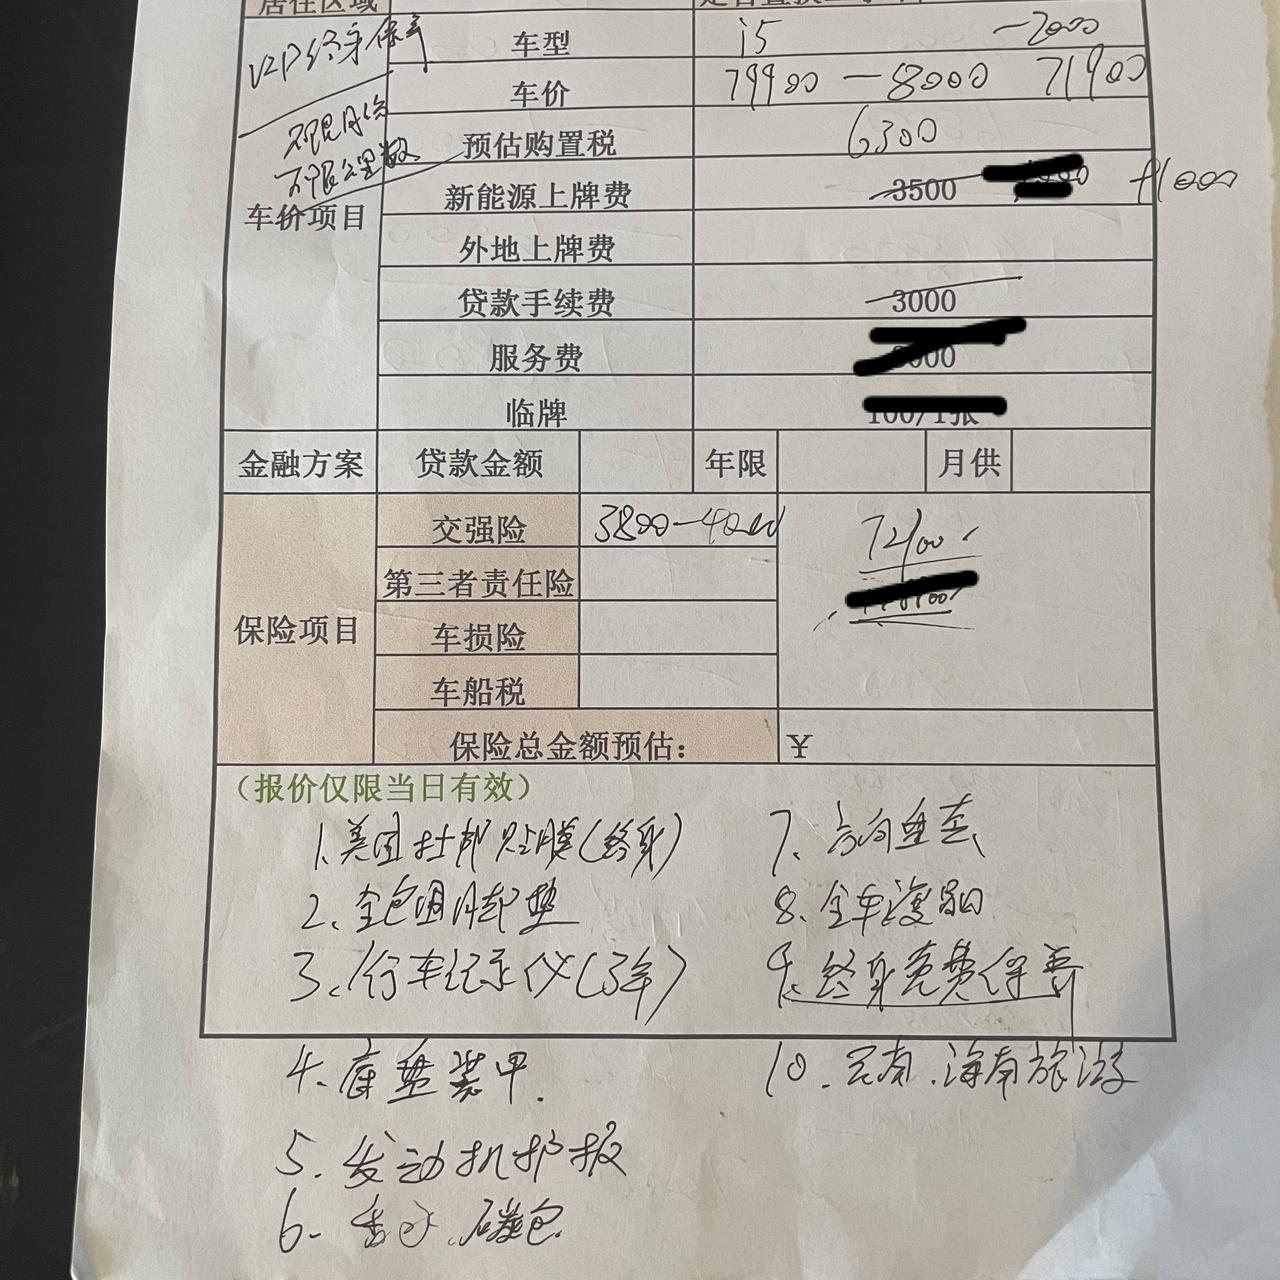 居住区域
VIP终身保养
车型 i5 -2000
车价 79900-8000 71900
不限月份
预估购置税 6300
不限公里数
新能源上牌费 3500 +1000
车价项目
外地上牌费
贷款手续费 3000
服务费 000
临牌 100/1张
金融方案 贷款金额 年限 月供
交强险 3800-4000
第三者责任险
保险项目
车损险
车船税
保险总金额预估： ￥
（报价仅限当日有效）
1、美国杜邦贴膜(终身)
2、全包围脚垫
3、行车记录仪(3年)
4、底盘装甲.
5、发动机护板
6、香水、礼包.
7、方向盘套
8、全车镀晶
9、终身免费保养
10、云南、海南旅游